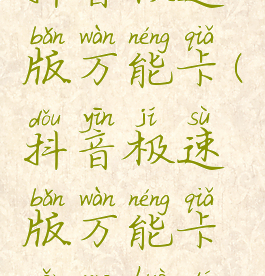 bǎn wàn néng qiǎ
版万能卡(
dǒu yīn jí sù
抖音极速
bǎn wàn néng qiǎ
版万能卡